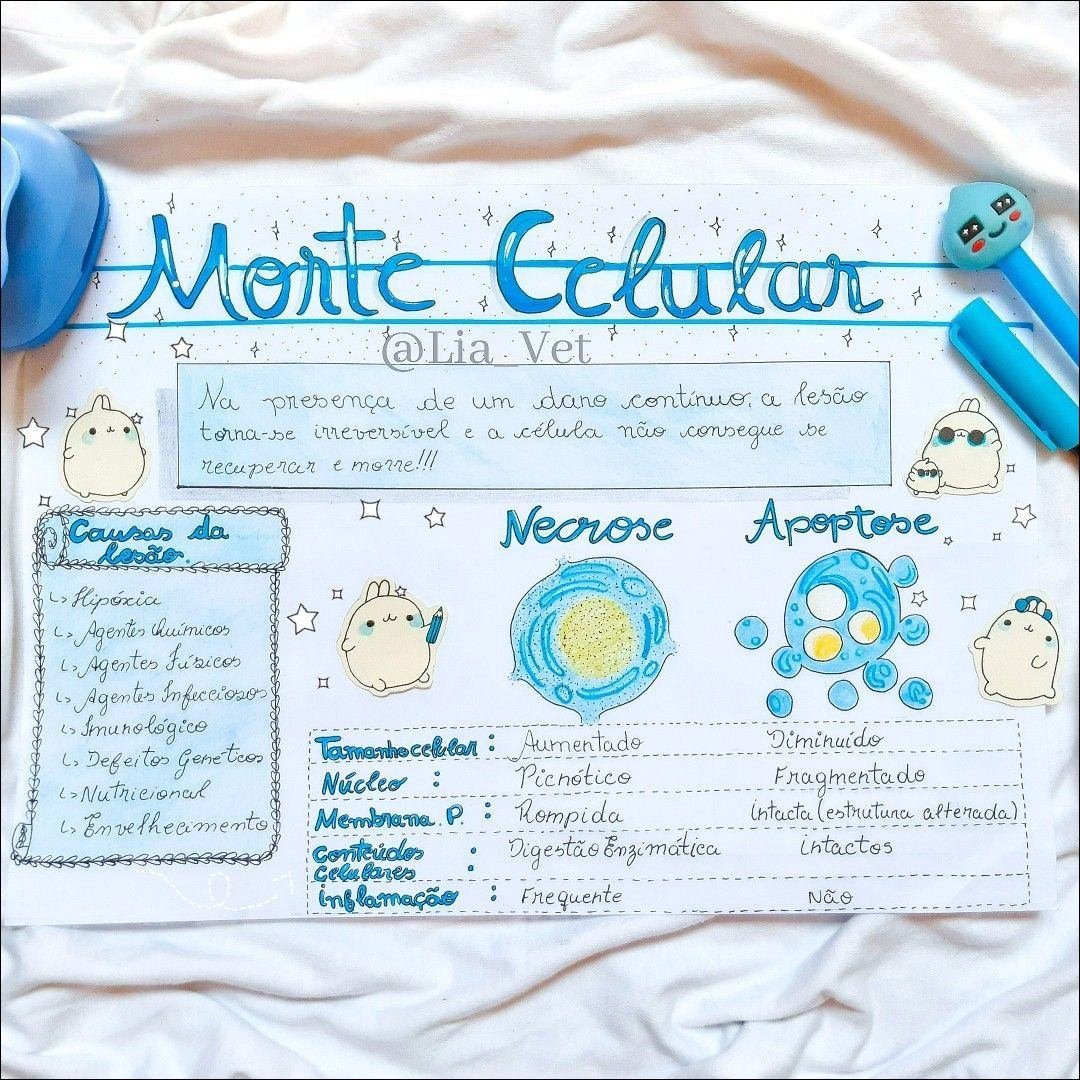 Morte Celular
@Lia_Vet
Na presença de um dano contínuo, a lesão
torna-se irreversível e a célula não consegue se
recuperar e morre!!!
Causas da
lesão.
↳ Hipóxia
↳ Agentes Químicos
↳ Agentes Físicos
↳ Agentes Infecciosos
↳ Imunológico
↳ Defeitos Genéticos
↳ Nutricional
↳ Envelhecimento
Necrose
Apoptose
Tamanho celular : Aumentado Diminuído
Núcleo : Picnótico Fragmentado
Membrana. P. : Rompida Intacta (estrutura alterada)
Conteúdos : Digestão Enzimática intactos
Celulares
inflamação : Frequente Não